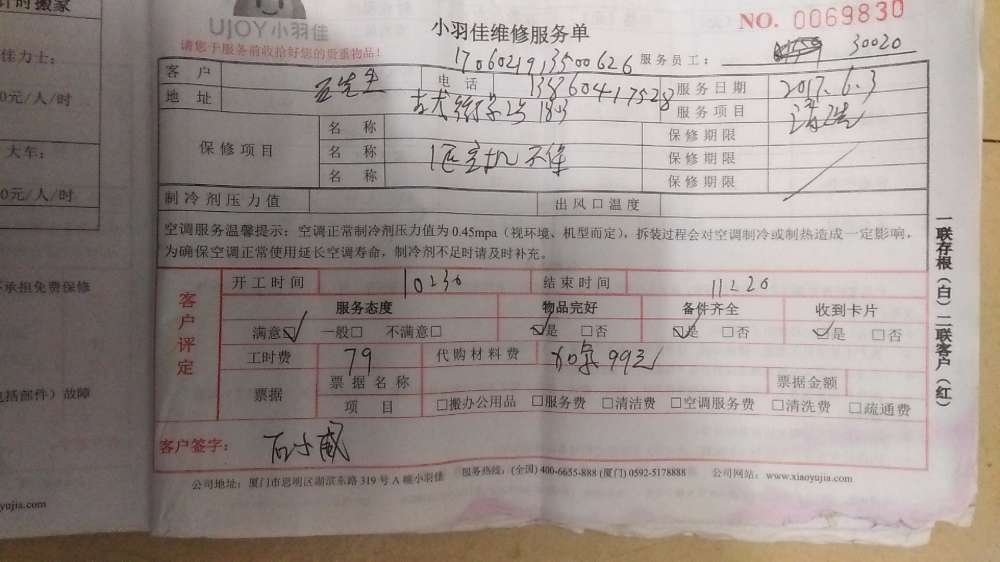 时搬家
UJOY小羽佳
小羽佳维修服务单
NO. 0069830
请您于服务前收拾好您的贵重物品!
1706021913500626
服务员工: 30020
佳力士:
客户
电话 13860417528
服务日期 2017.6.3
0元/人/时
地址
服务项目 清洗
保修项目
名称
保修期限
大车:
名称
保修期限
名称
保修期限
0元/人/时
制冷剂压力值
出风口温度
空调服务温馨提示:空调正常制冷剂压力值为0.45mpa(视环境、机型而定),拆装过程会对空调制冷或制热造成一定影响,
为确保空调正常使用延长空调寿命,制冷剂不足时请及时补充。
开工时间 10:30 结束时间 11:20
不承担免费保修
客户评定
服务态度 物品完好 备件齐全 收到卡片
满意☑ 一般□ 不满意□ ☑是 □否 ☑是 □否 ☑是 □否
工时费 79 代购材料费 加氟99元
票据
票据名称
票据金额
包括部件)故障
项目 □搬办公用品 □服务费 □清洁费 □空调服务费 □清洗费 □疏通费
客户签字:
公司地址:厦门市思明区湖滨东路319号A幢小羽佳 服务热线:(全国)400-6655-888 (厦门)0592-5178888 公司网站:www.xiaoyujia.com
yujia.com
一联存根(白)二联客户(红)